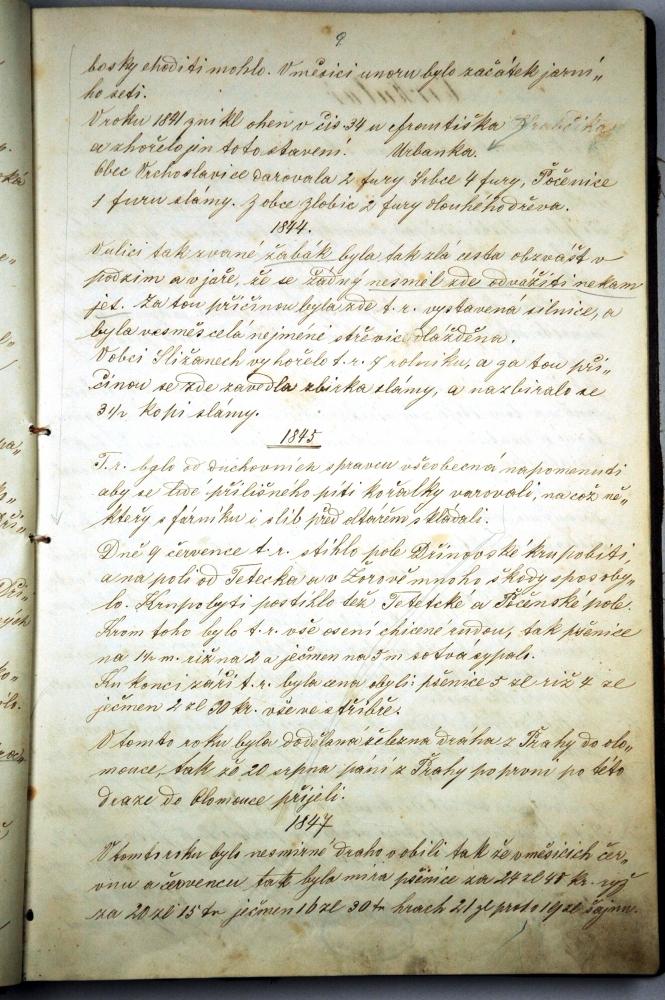 9.
bosky choditi mohlo. V měsíci unoru bylo začátek jarní„
ho setí.
V roku 1841 znikl oheň v čís 34 u Františka
a zhořelo jen toto stavení. Urbanka.
Obec Vrchoslavice darovala 2 fury Srbce 4 fury, Počenice
1 furu slámy. Z obce Zlobic 2 fury dlouhého dřeva.
1844.
V ulici tak zvané žabák byla tak zlá cesta obzvášť v
podzim a v jaře, že se žádný nesměl zde odvážiti nekam
jet. Za tou příčinou byla zde t. r. vystavená silnice, a
byla vesměs celá nejméně střevice dlážděna.
V obci Slížanech vyhořelo t. r. 7 rolníku, a za tou pří„
činou se zde zavedla zbírka slámy, a nazbíralo se
3 1/2 kopi slámy.
1845
T. r. bylo od duchovních spravcu všeobecná napomenutí
aby se lidé přílišného pití kořalky varovali, na což ně„
který s fárníku i slib před oltářem skládali.
Dně 9 července t. r. stihlo pole Dřínovské krupobití
a na poli od Tetecka a v Žorově mnoho škody sposoby„
lo. Krupobytí postihlo též Tetetcké a Počenské pole.
Krom toho bylo t. r. vše osení chicené rudou, tak pšenice
na 1 1/2 m. riž na 2 a ječmen na 3 m sotva sypali.
Ku konci září t. r. byla cena obylí: pšenice 5 zl riž 4 zl
ječmen 2 zl 30 kr. vše ve stříbře.
V tomto roku byla dodělana železná dráha z Prahy do Olo„
mouce, tak že 20 srpna páni z Prahy po první po této
draze do Olomouce přijeli.
1847
V tomto roku bylo nesmírné draho v obilí tak že v měsících čer„
vnu a červencu tak byla míra pšenice za 24 zl 48 kr. ryž
za 20 zl 15 kr ječmen 16 zl 30 kr hrach 21 zl proso 19 zl